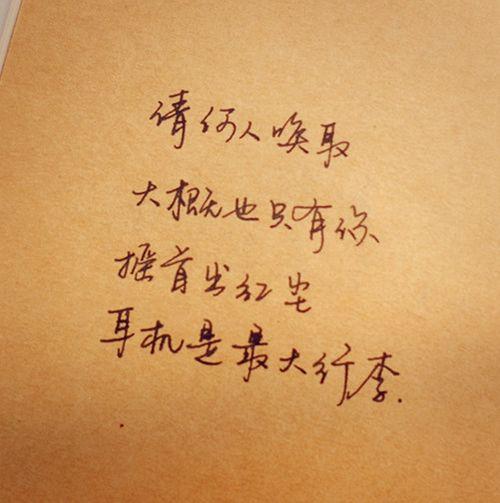 倩何人唤取
大概也只有你
摇首出红尘
耳机是最大行李.